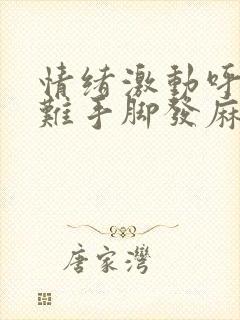 情绪激動呼
難手脚發麻
唐家灣